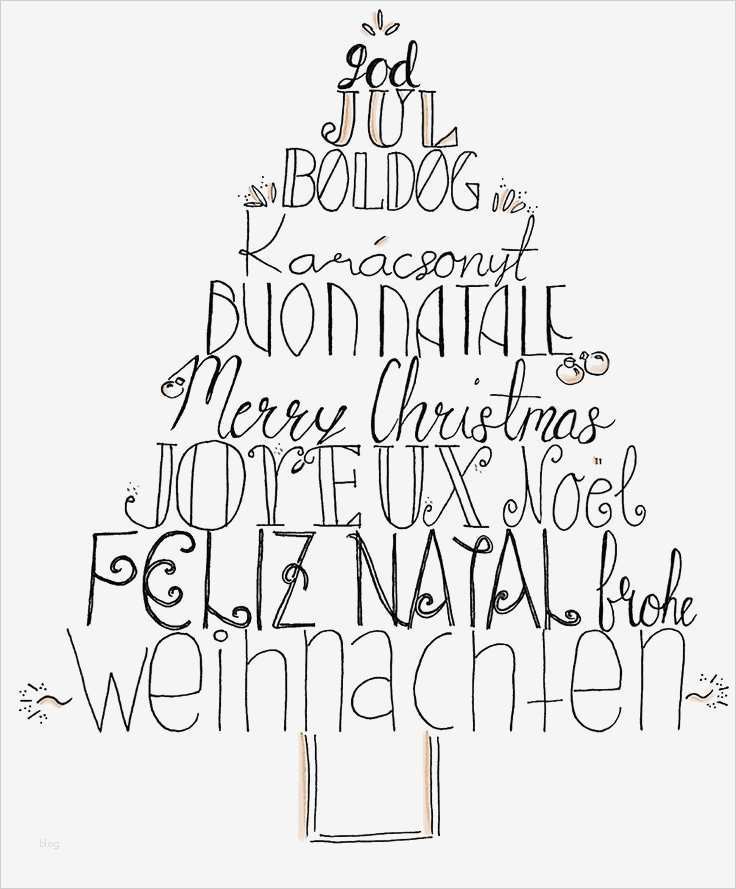 god
JUL
BOLDOG
Karácsonyt
BUON NATALE
Merry Christmas
JOYEUX Noël
FELIZ NATAL frohe
weihnachten
blog